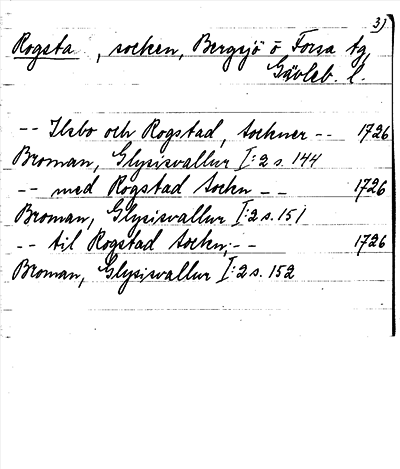 3)
Rogsta, socken, Bergsjö o Forsa tg,
Gävleb. l.
-- Ilsbo och Rogstad, sochner -- 1726
Broman, Glysisvallur I:2 s. 144
-- med Rogstad sochn -- 1726
Broman, Glysisvallur I:2 s. 151
-- til Rogstad sochn, -- 1726
Broman, Glysisvallur I:2 s. 152